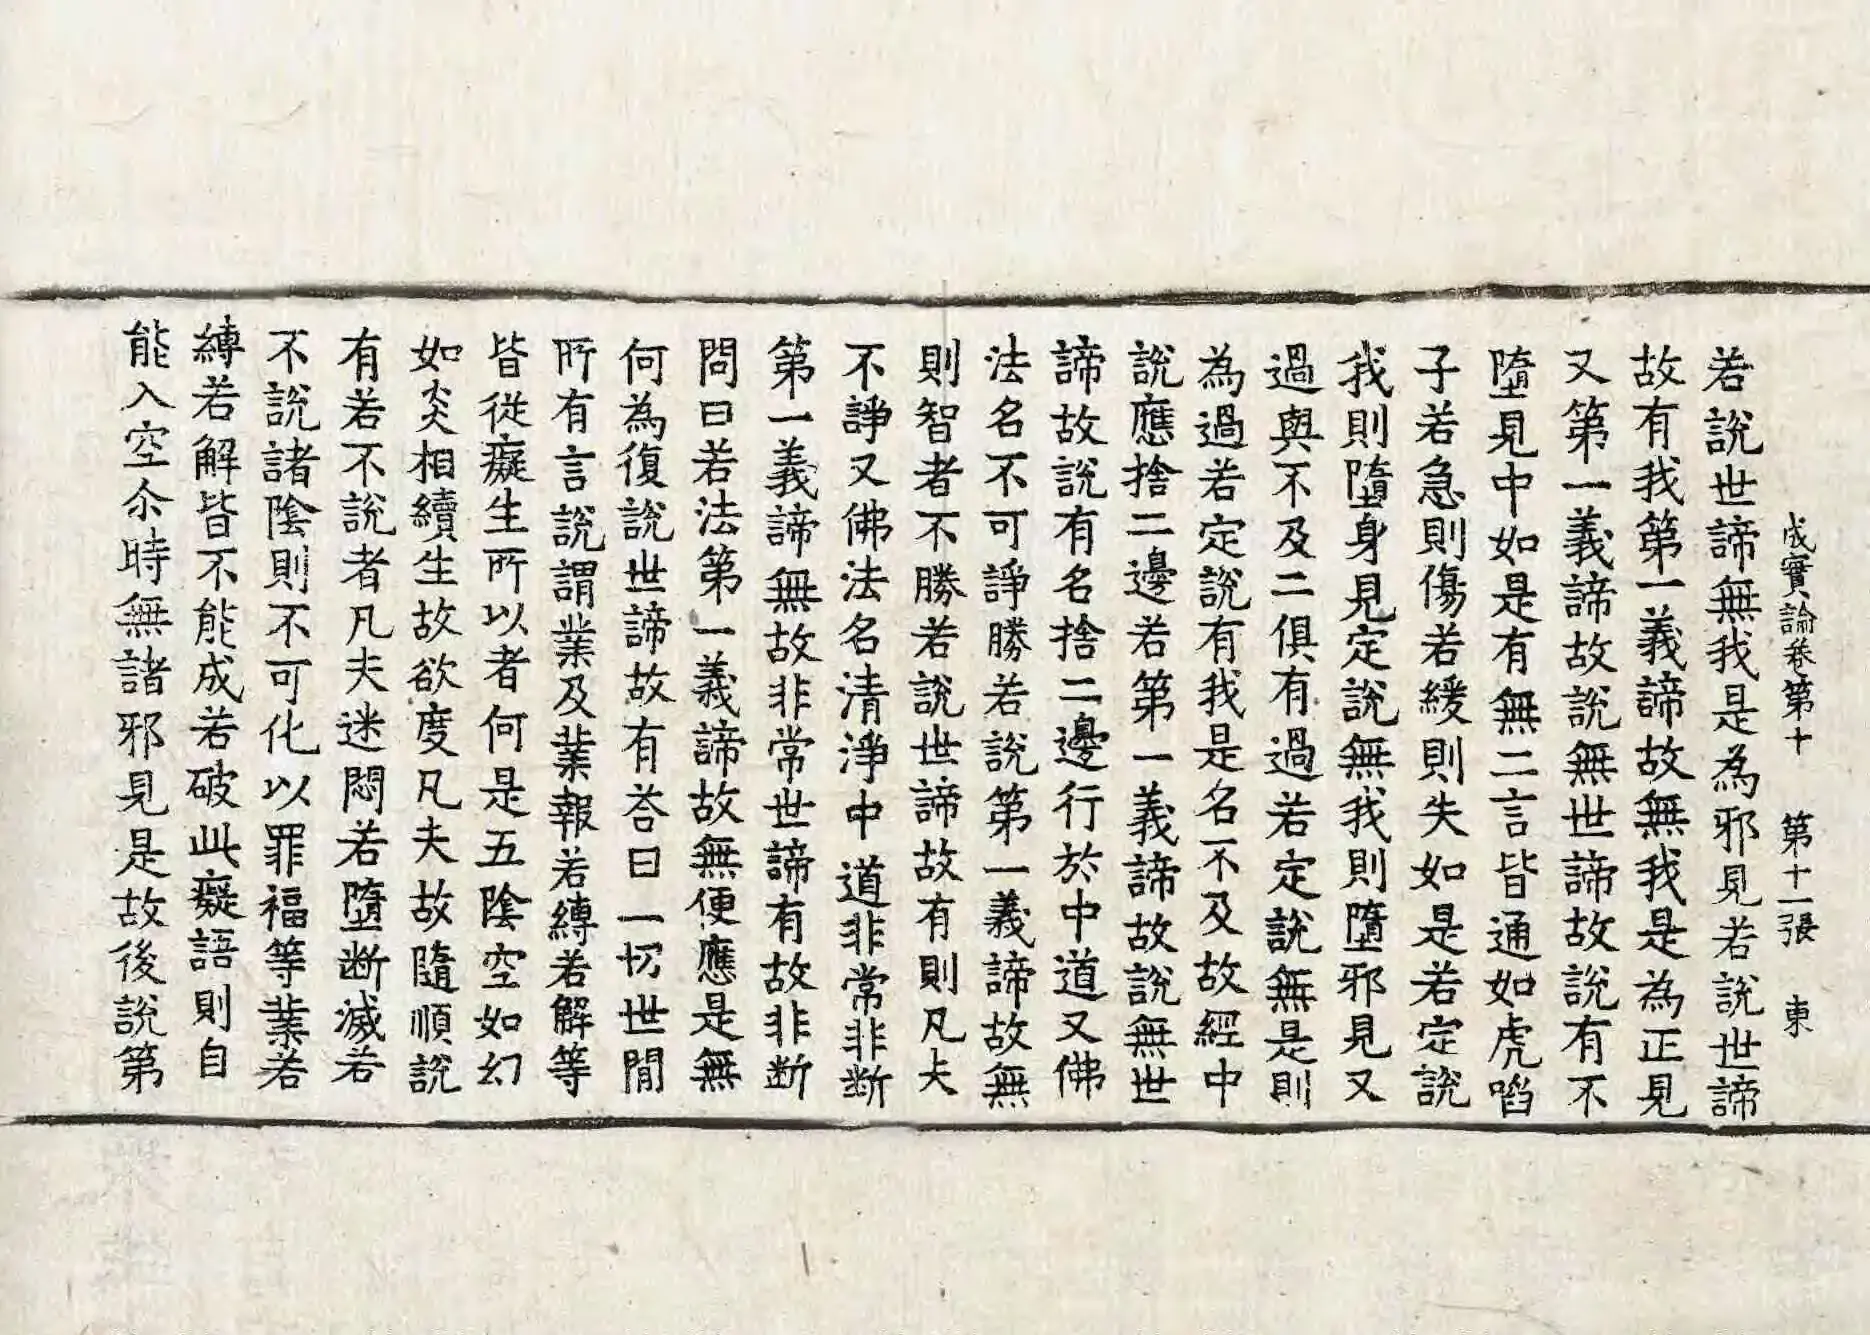 成實論卷第十　第十一張　東
若說世諦無我是為邪見若說世諦
故有我第一義諦故無我是為正見
又第一義諦故說無世諦故說有不
墮見中如是有無二言皆通如虎啗
子若急則傷若緩則失如是若定說
我則墮身見定說無我則墮邪見又
過與不及二俱有過若定說無是則
為過若定說有我是名不及故經中
說應捨二邊若第一義諦故說無世
諦故說有名捨二邊行於中道又佛
法名不可諍勝若說第一義諦故無
則智者不勝若說世諦故有則凡夫
不諍又佛法名清淨中道非常非断
第一義諦無故非常世諦有故非断
問曰若法第一義諦故無便應是無
何為復說世諦故有荅曰一切世閒
所有言說謂業及業報若縛若解等
皆從癡生所以者何是五陰空如幻
如炎相續生故欲度凡夫故隨順說
有若不說者凡夫迷悶若墮断滅若
不說諸陰則不可化以罪福等業若
縛若解皆不能成若破此癡語則自
能入空尒時無諸邪見是故後說第